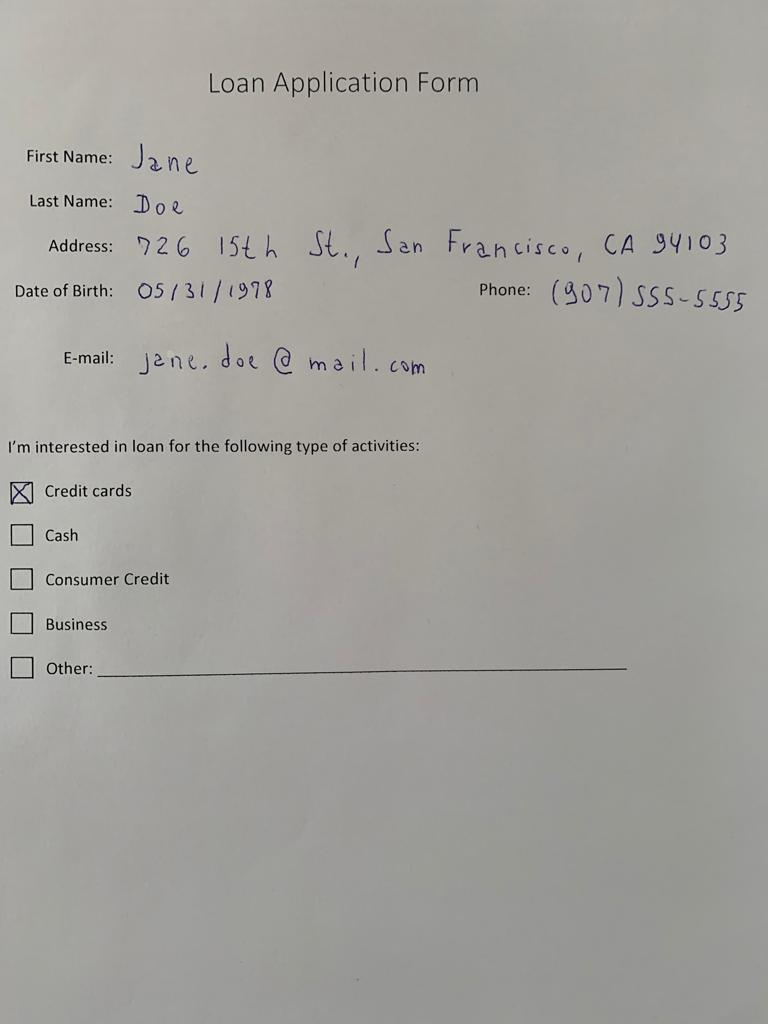 Loan Application Form
First Name: Jane
Last Name: Doe
Address: 726 15th St., San Francisco, CA 94103
Date of Birth: 05/31/1978 Phone: (907) 555-5555
E-mail: jane.doe@mail.com
I'm interested in loan for the following type of activities:
☒ Credit cards
☐ Cash
☐ Consumer Credit
☐ Business
☐ Other: